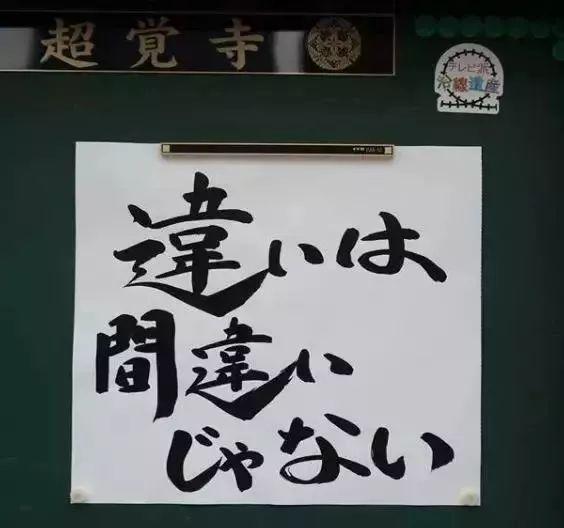 超覚寺
テレビ派
冷線遺産
違いは
間違い
じゃない